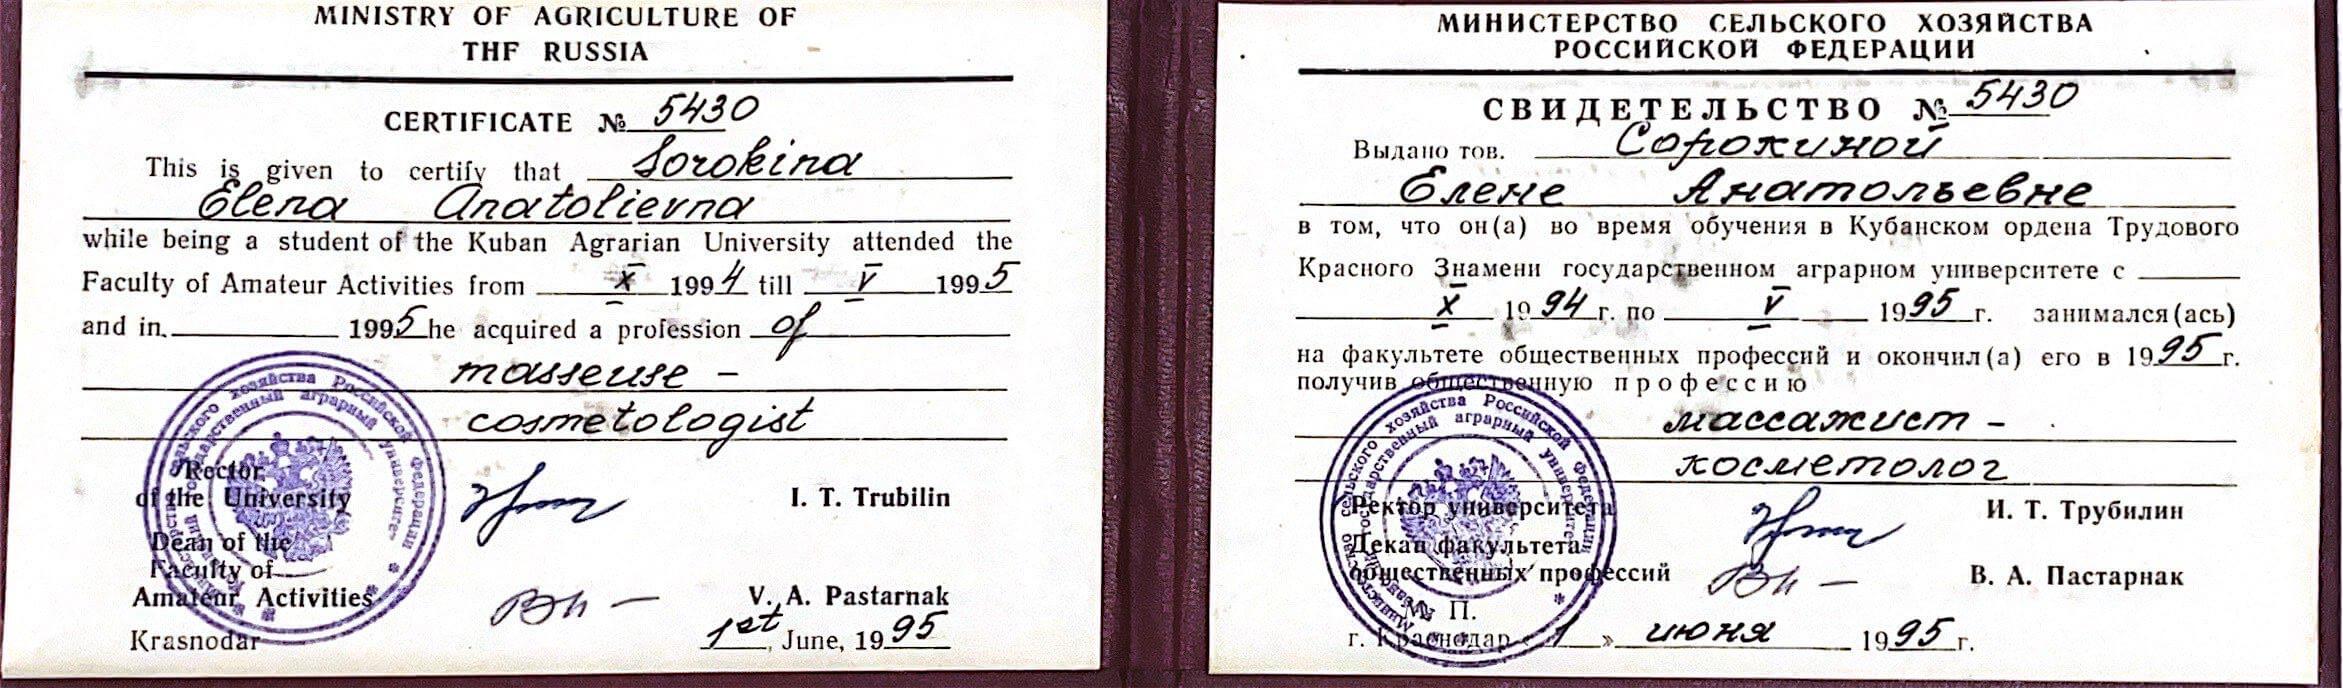 MINISTRY OF AGRICULTURE OF
THF RUSSIA
CERTIFICATE № 5430
This is given to certify that Sorokina
Elena Anatolievna
while being a student of the Kuban Agrarian University attended the
Faculty of Amateur Activities from X 1994 till V 1995
and in. 1995 he acquired a profession of
masseuse -
cosmetologist
Rector
of the University
I. T. Trubilin
Dean of the
Faculty of
Amateur Activities
V. A. Pastarnak
Krasnodar
1st, June, 1995
МИНИСТЕРСТВО СЕЛЬСКОГО ХОЗЯЙСТВА
РОССИЙСКОЙ ФЕДЕРАЦИИ
СВИДЕТЕЛЬСТВО № 5430
Выдано тов. Сорокиной
Елене Анатольевне
в том, что он(а) во время обучения в Кубанском ордена Трудового
Красного Знамени государственном аграрном университете с
X 1994 г. по V 1995 г. занимался(ась)
на факультете общественных профессий и окончил(а) его в 1995 г.
получив общественную профессию
массажист -
косметолог
Ректор университета
И. Т. Трубилин
Декан факультета
общественных профессий
В. А. Пастарнак
М. П.
г. Краснодар « 1 » июня 1995 г.